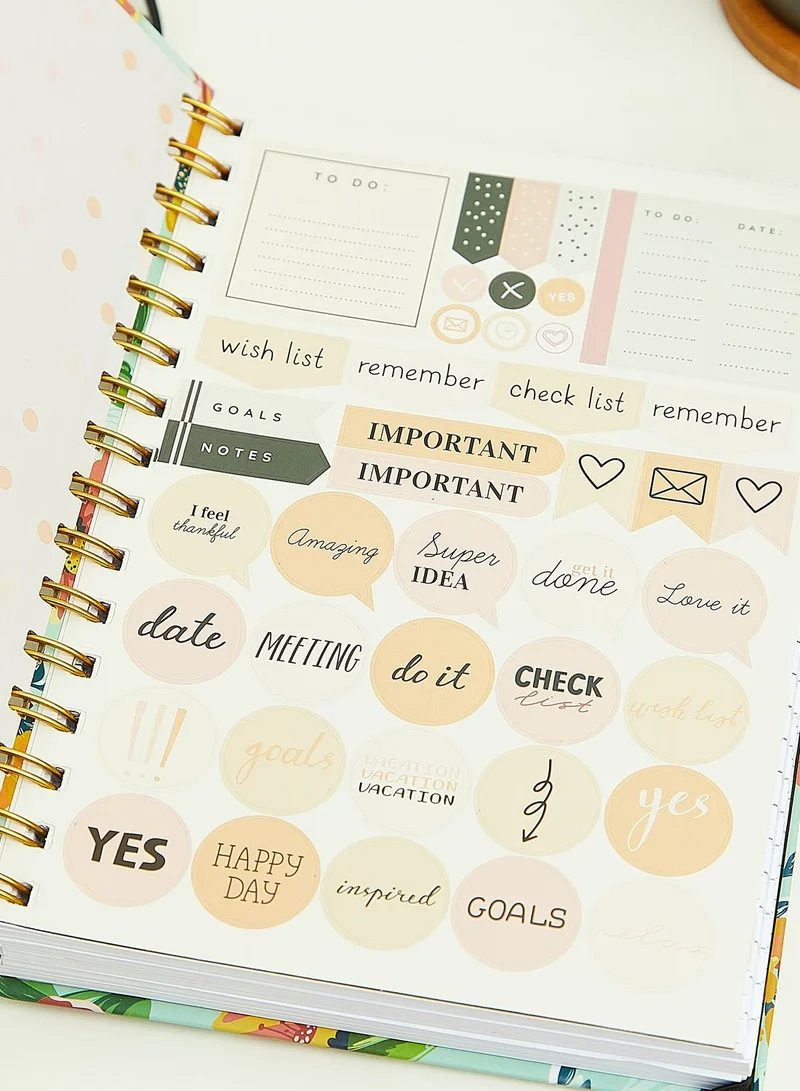 TO DO:
TO DO:
DATE:
YES
wish list
remember
check list
remember
GOALS
NOTES
IMPORTANT
IMPORTANT
I feel
thankful
Amazing
Super
IDEA
get it
done
Love it
date
MEETING
do it
CHECK
list
wish list
!!!
goals
VACATION
VACATION
VACATION
yes
YES
HAPPY
DAY
inspired
GOALS
relax